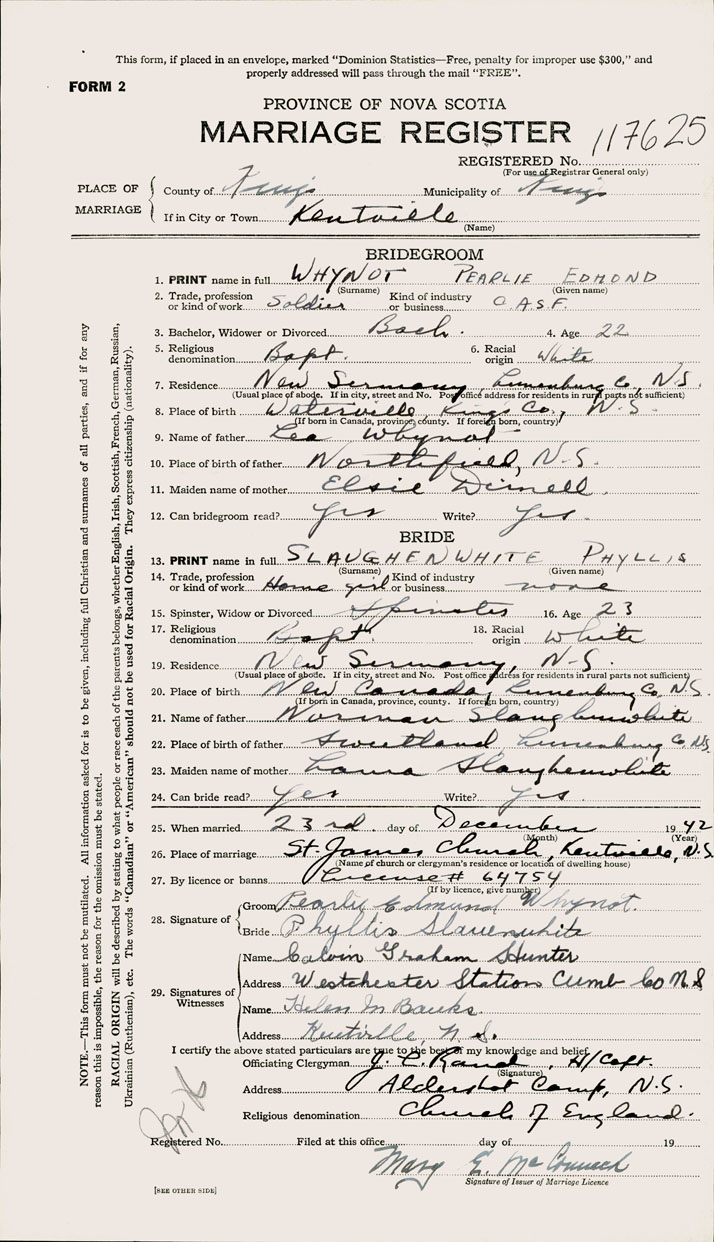 This form, if placed in an envelope, marked "Dominion Statistics—Free, penalty for improper use $300," and
properly addressed will pass through the mail "FREE".
FORM 2
PROVINCE OF NOVA SCOTIA
MARRIAGE REGISTER
117625
REGISTERED No.
(For use of Registrar General only)
PLACE OF MARRIAGE
County of Kings Municipality of Kings
If in City or Town Kentville
(Name)
BRIDEGROOM
1. PRINT name in full WHYNOT PEARLIE EDMOND
(Surname) (Given name)
2. Trade, profession or kind of work Soldier Kind of industry or business C.A.S.F.
3. Bachelor, Widower or Divorced Bach. 4. Age 22
5. Religious denomination Bapt. 6. Racial origin White
7. Residence New Germany, Lunenburg Co., N.S.
(Usual place of abode. If in city, street and No. Post office address for residents in rural parts not sufficient)
8. Place of birth Waterville, Kings Co., N.S.
(If born in Canada, province, county. If foreign born, country)
9. Name of father Leo Whynot
10. Place of birth of father Northfield, N.S.
11. Maiden name of mother Elsie
12. Can bridegroom read? Yes Write? Yes.
BRIDE
13. PRINT name in full SLAUGHENWHITE PHYLLIS
(Surname) (Given name)
14. Trade, profession or kind of work Home girl Kind of industry or business none
15. Spinster, Widow or Divorced Spinster 16. Age 23
17. Religious denomination Bapt 18. Racial origin White
19. Residence New Germany, N.S.
(Usual place of abode. If in city, street and No. Post office address for residents in rural parts not sufficient)
20. Place of birth New Canada, Lunenburg Co, N.S.
(If born in Canada, province, county. If foreign born, country)
21. Name of father Norman Slaughenwhite
22. Place of birth of father Sweetland, Lunenburg Co NS
23. Maiden name of mother Laura Slaughenwhite
24. Can bride read? Yes Write? Yes.
25. When married 23rd. day of December 1942
(Month) (Year)
26. Place of marriage St. James Church, Kentville, N.S.
(Name of church or clergyman's residence or location of dwelling house)
27. By licence or banns License # 64754
(If by licence, give number)
28. Signature of
Groom Pearlie Edmund Whynot.
Bride Phyllis Slauenwhite
29. Signatures of Witnesses
Name Calvin Graham Hunter
Address Westchester Station Cumb Co N.S
Name Helen M Banks.
Address Kentville, N.S.
I certify the above stated particulars are true to the best of my knowledge and belief.
Officiating Clergyman , H/Capt.
(Signature)
Address Aldershot Camp, N.S.
Religious denomination Church of England.
Registered No. Filed at this office day of 19
Mary E.
Signature of Issuer of Marriage Licence
[SEE OTHER SIDE]
NOTE.—This form must not be mutilated. All information asked for is to be given, including full Christian and surnames of all parties, and if for any
reason this is impossible, the reason for the omission must be stated.
RACIAL ORIGIN will be described by stating to what people or race each of the parents belongs, whether English, Irish, Scottish, French, German, Russian,
Ukrainian (Ruthenian), etc. The words "Canadian" or "American" should not be used for Racial Origin. They express citizenship (nationality).